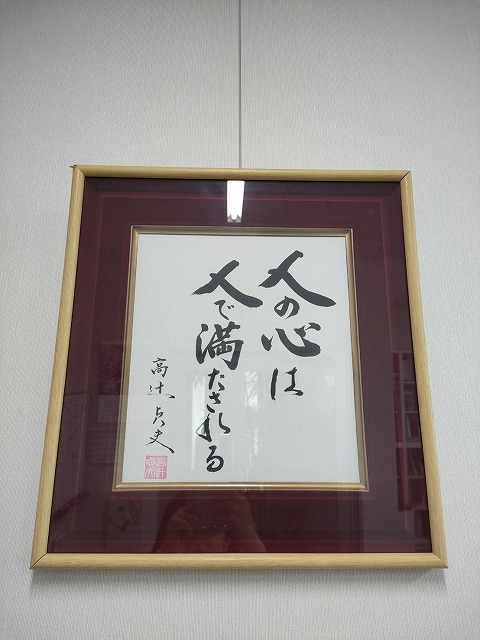 人の心は
人で満たされる
高辻貞史